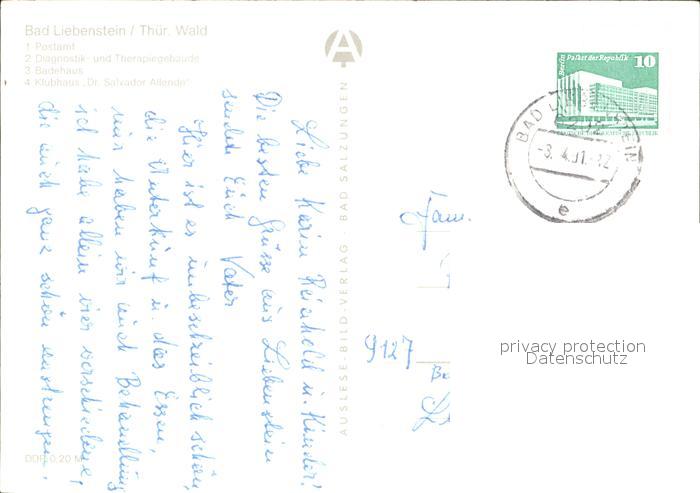 Bad Liebenstein / Thür. Wald
1 Postamt
2 Diagnostik- und Therapiegebäude
3 Badehaus
4 Klubhaus „Dr. Salvador Allende"
Liebe Karin Reinhold u. Kinder!
Die besten Grüsse aus Liebenstein
sendet Euch Vater
Hier ist es unbeschreiblich schön,
die Unterkunft u. das Essen,
nur haben wir auch Behandlung
ich habe allein vier verschiedene,
die mich ganz schön anstrengen.
DDR 0,20 M
AUSLESE-BILD-VERLAG · BAD SALZUNGEN
A
Berlin Palast der Republik
10
BAD LIEBENSTEIN
-3. 4.81.-12
e
Fam.
9127
privacy protection
Datenschutz